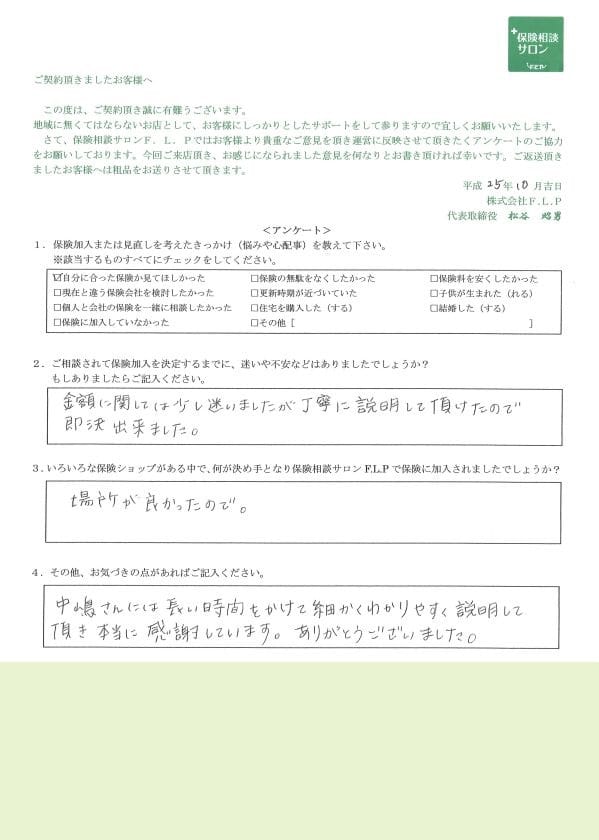 +保険相談
サロン
ご契約頂きましたお客様へ
この度は、ご契約頂き誠に有難うございます。
地域に無くてはならないお店として、お客様にしっかりとしたサポートをして参りますので宜しくお願いいたします。
さて、保険相談サロンF．L．Pではお客様より貴重なご意見を頂き運営に反映させて頂きたくアンケートのご協力
をお願いしております。今回ご来店頂き、お感じになられました意見を何なりとお書き頂ければ幸いです。ご返送頂き
ましたお客様へは粗品をお送りさせて頂きます。
平成 25年 10 月吉日
株式会社F.L.P
代表取締役 松谷 昭男
＜アンケート＞
１．保険加入または見直しを考えたきっかけ（悩みや心配事）を教えて下さい。
※該当するものすべてにチェックをしてください。
☑自分に合った保険か見てほしかった □保険の無駄をなくしたかった □保険料を安くしたかった
□現在と違う保険会社を検討したかった □更新時期が近づいていた □子供が生まれた（れる）
□個人と会社の保険を一緒に相談したかった □住宅を購入した（する） □結婚した（する）
□保険に加入していなかった □その他［ ］
２．ご相談されて保険加入を決定するまでに、迷いや不安などはありましたでしょうか？
もしありましたらご記入ください。
金額に関しては少し迷いましたが丁寧に説明して頂けたので
即決出来ました。
３．いろいろな保険ショップがある中で、何が決め手となり保険相談サロンF.L.Pで保険に加入されましたでしょうか？
場所が良かったので。
４．その他、お気づきの点があればご記入ください。
中嶋さんには長い時間をかけて細かくわかりやすく説明して
頂き本当に感謝しています。ありがとうございました。